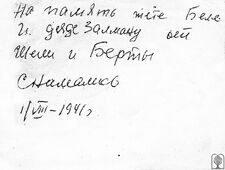 На память тёте Беле
и дяде Залману от
Шели и Берты
Снимались
1/VIII-1941г